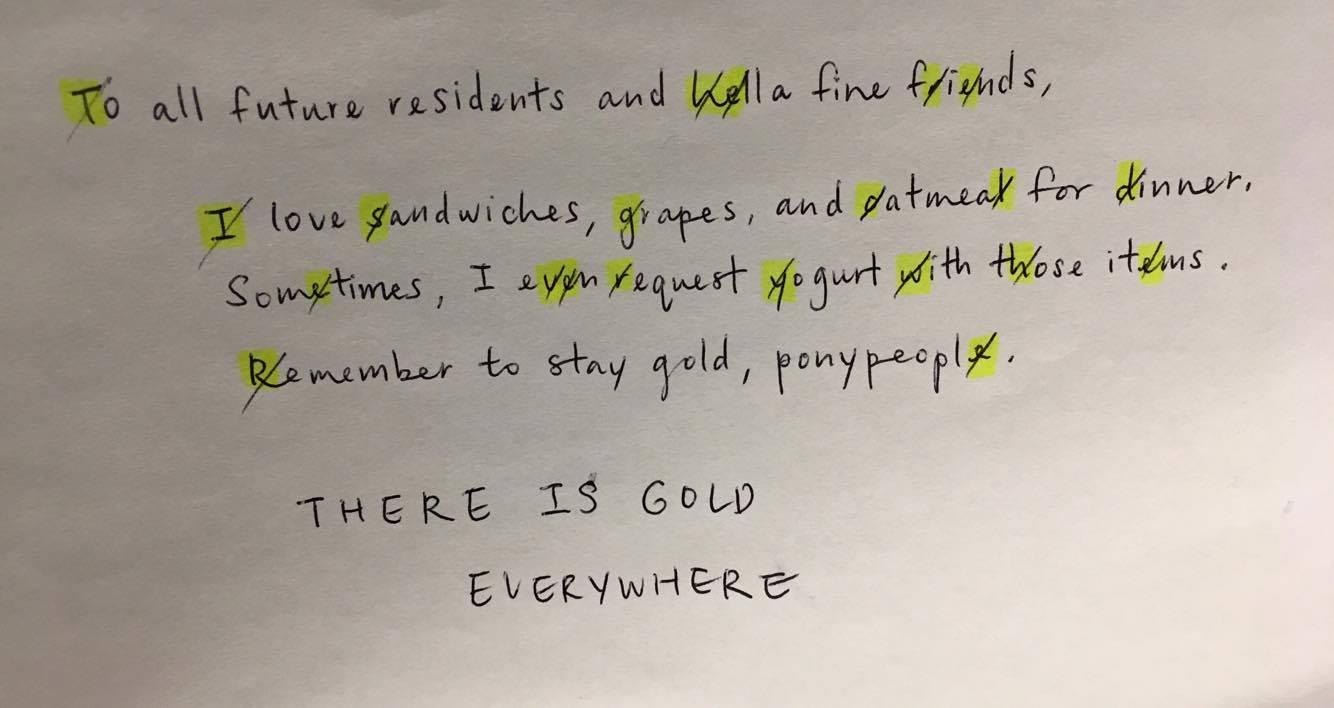 To all future residents and hella fine friends,
I love sandwiches, grapes, and oatmeal for dinner.
Sometimes, I even request yogurt with those items.
Remember to stay gold, ponypeople.
THERE IS GOLD
EVERYWHERE